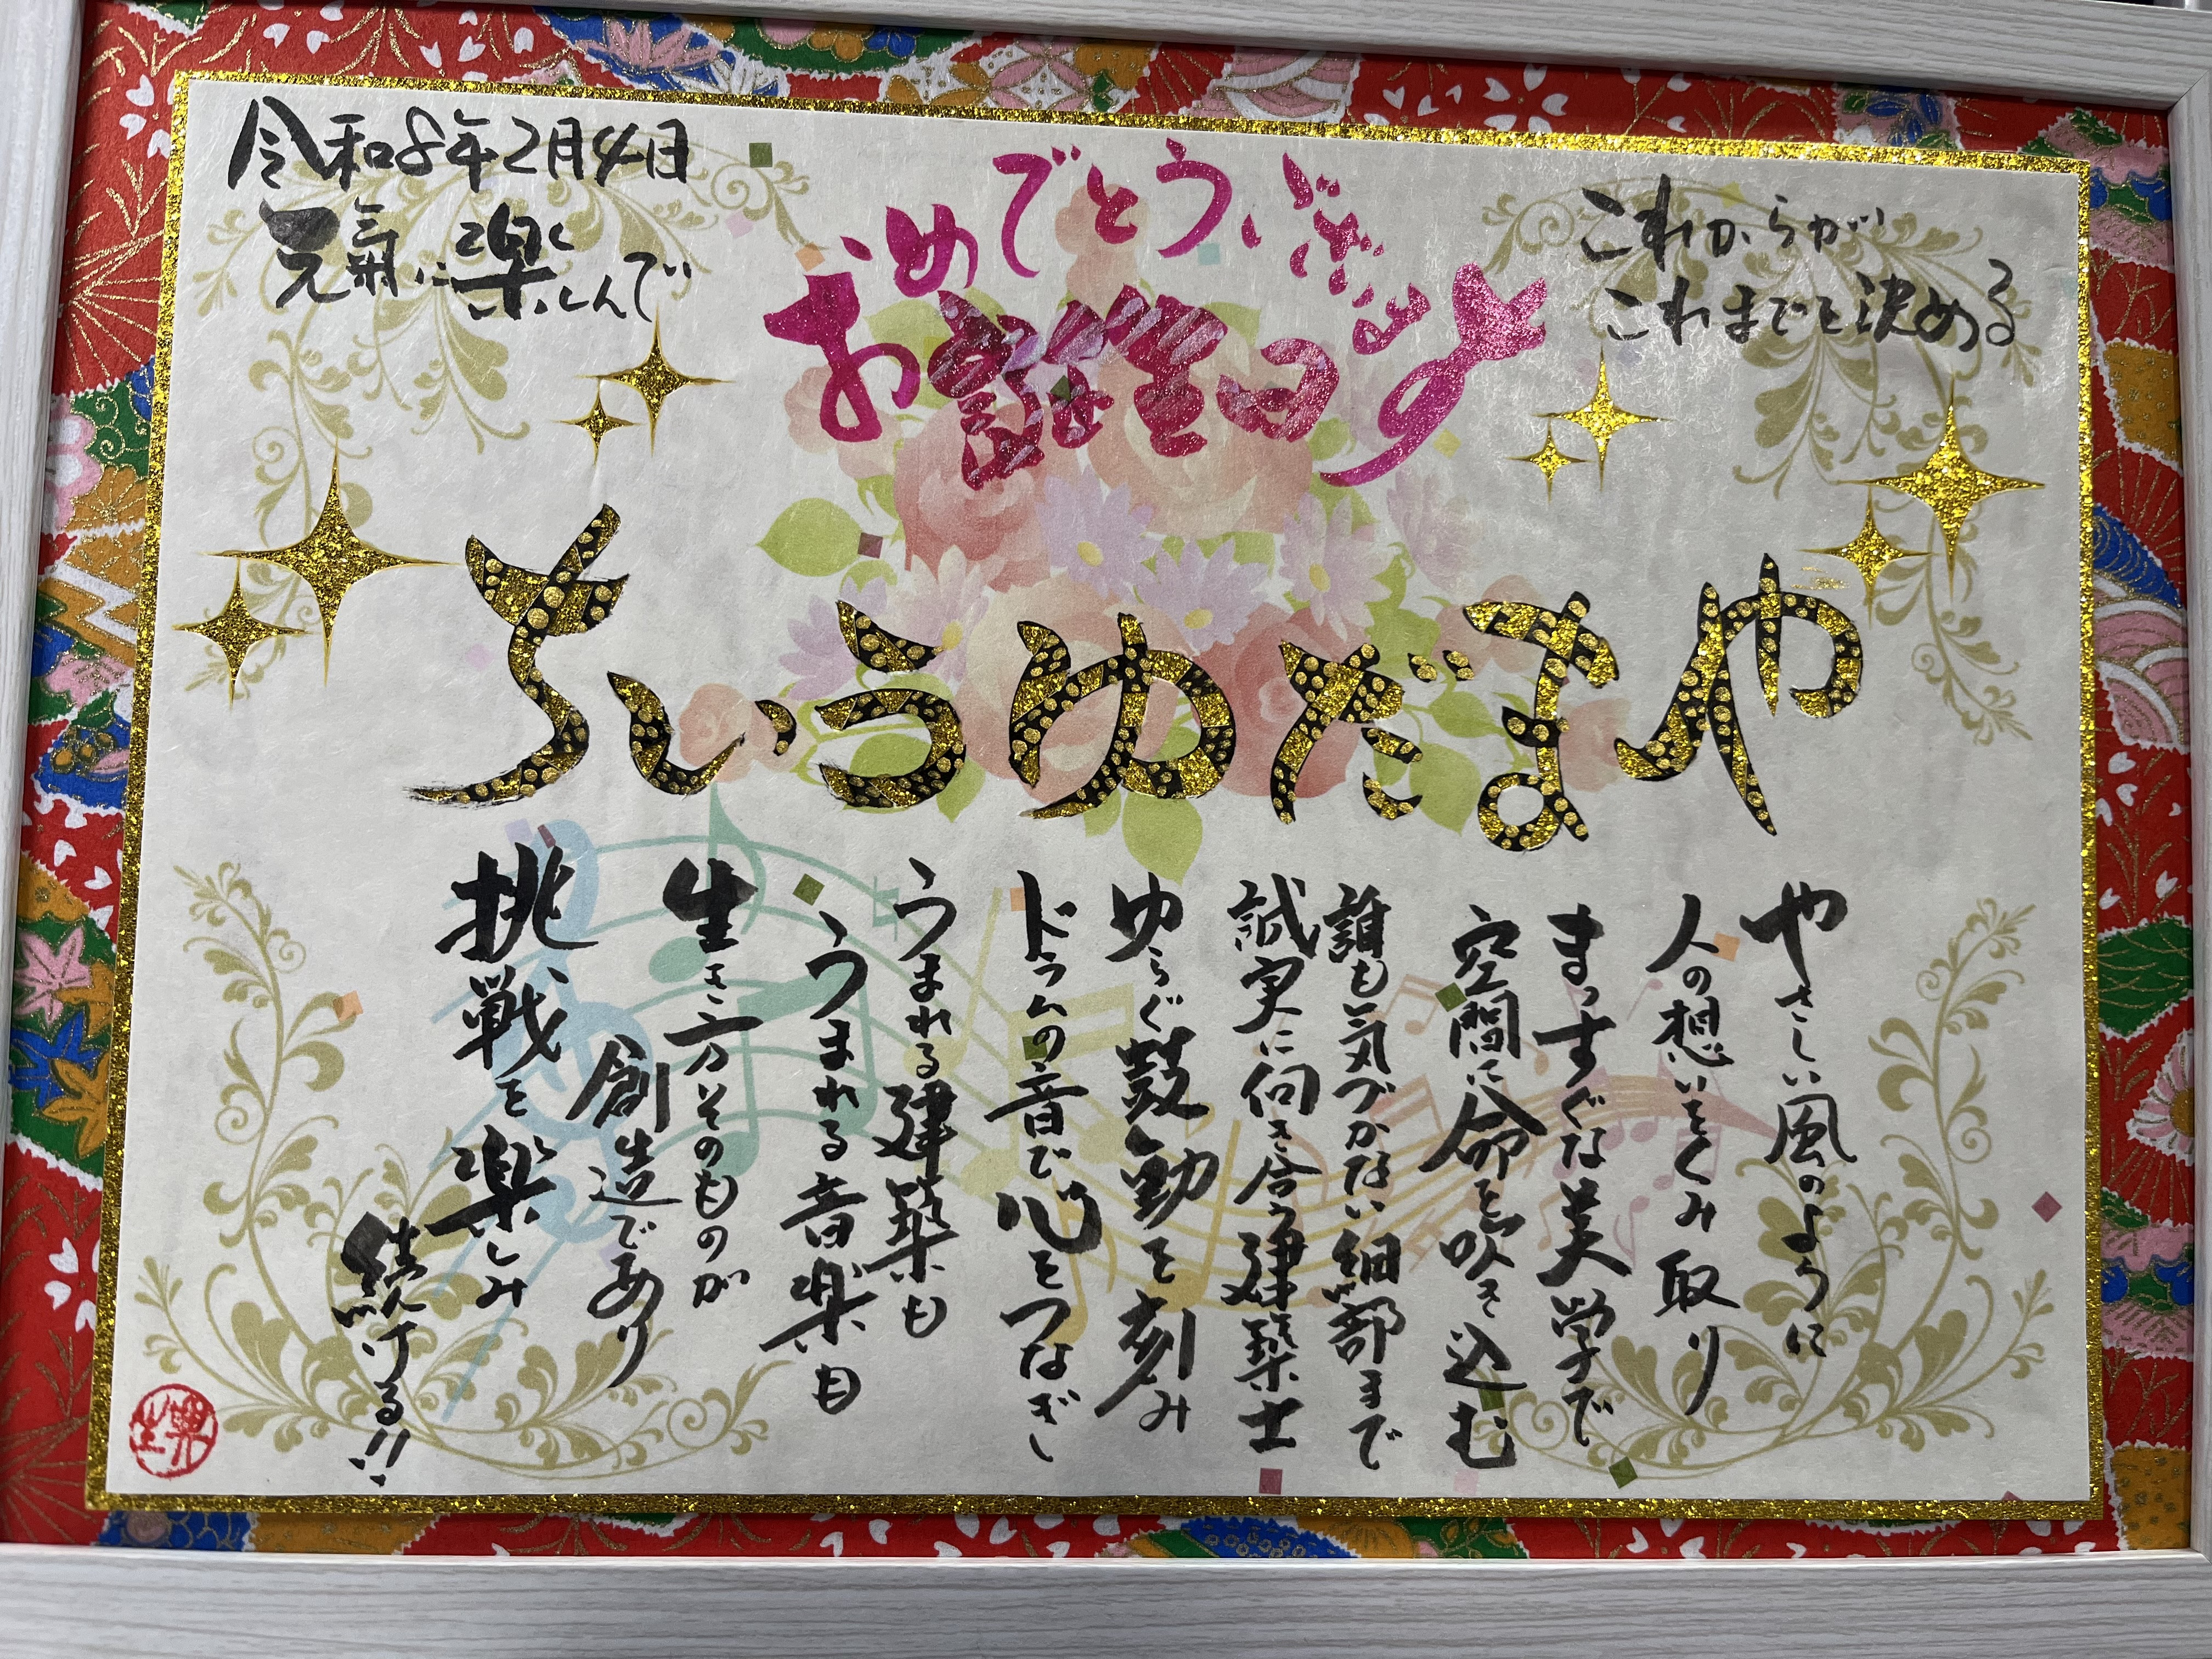 令和8年2月4日
元氣に楽しんで
お誕生日
おめでとうございます
これからが
これまでを決める
やまだゆういち
やさしい風のように
人の想いをくみ取り
まっすぐな美学で
空間に命を吹き込む
誰も気づかない細部まで
誠実に向き合う建築士
ゆらぐ鼓動を刻み
ドラムの音で心をつなぎ
うまれる建築も
うまれる音楽も
生き方そのものが
創造であり
挑戦を楽しみ
続ける!!